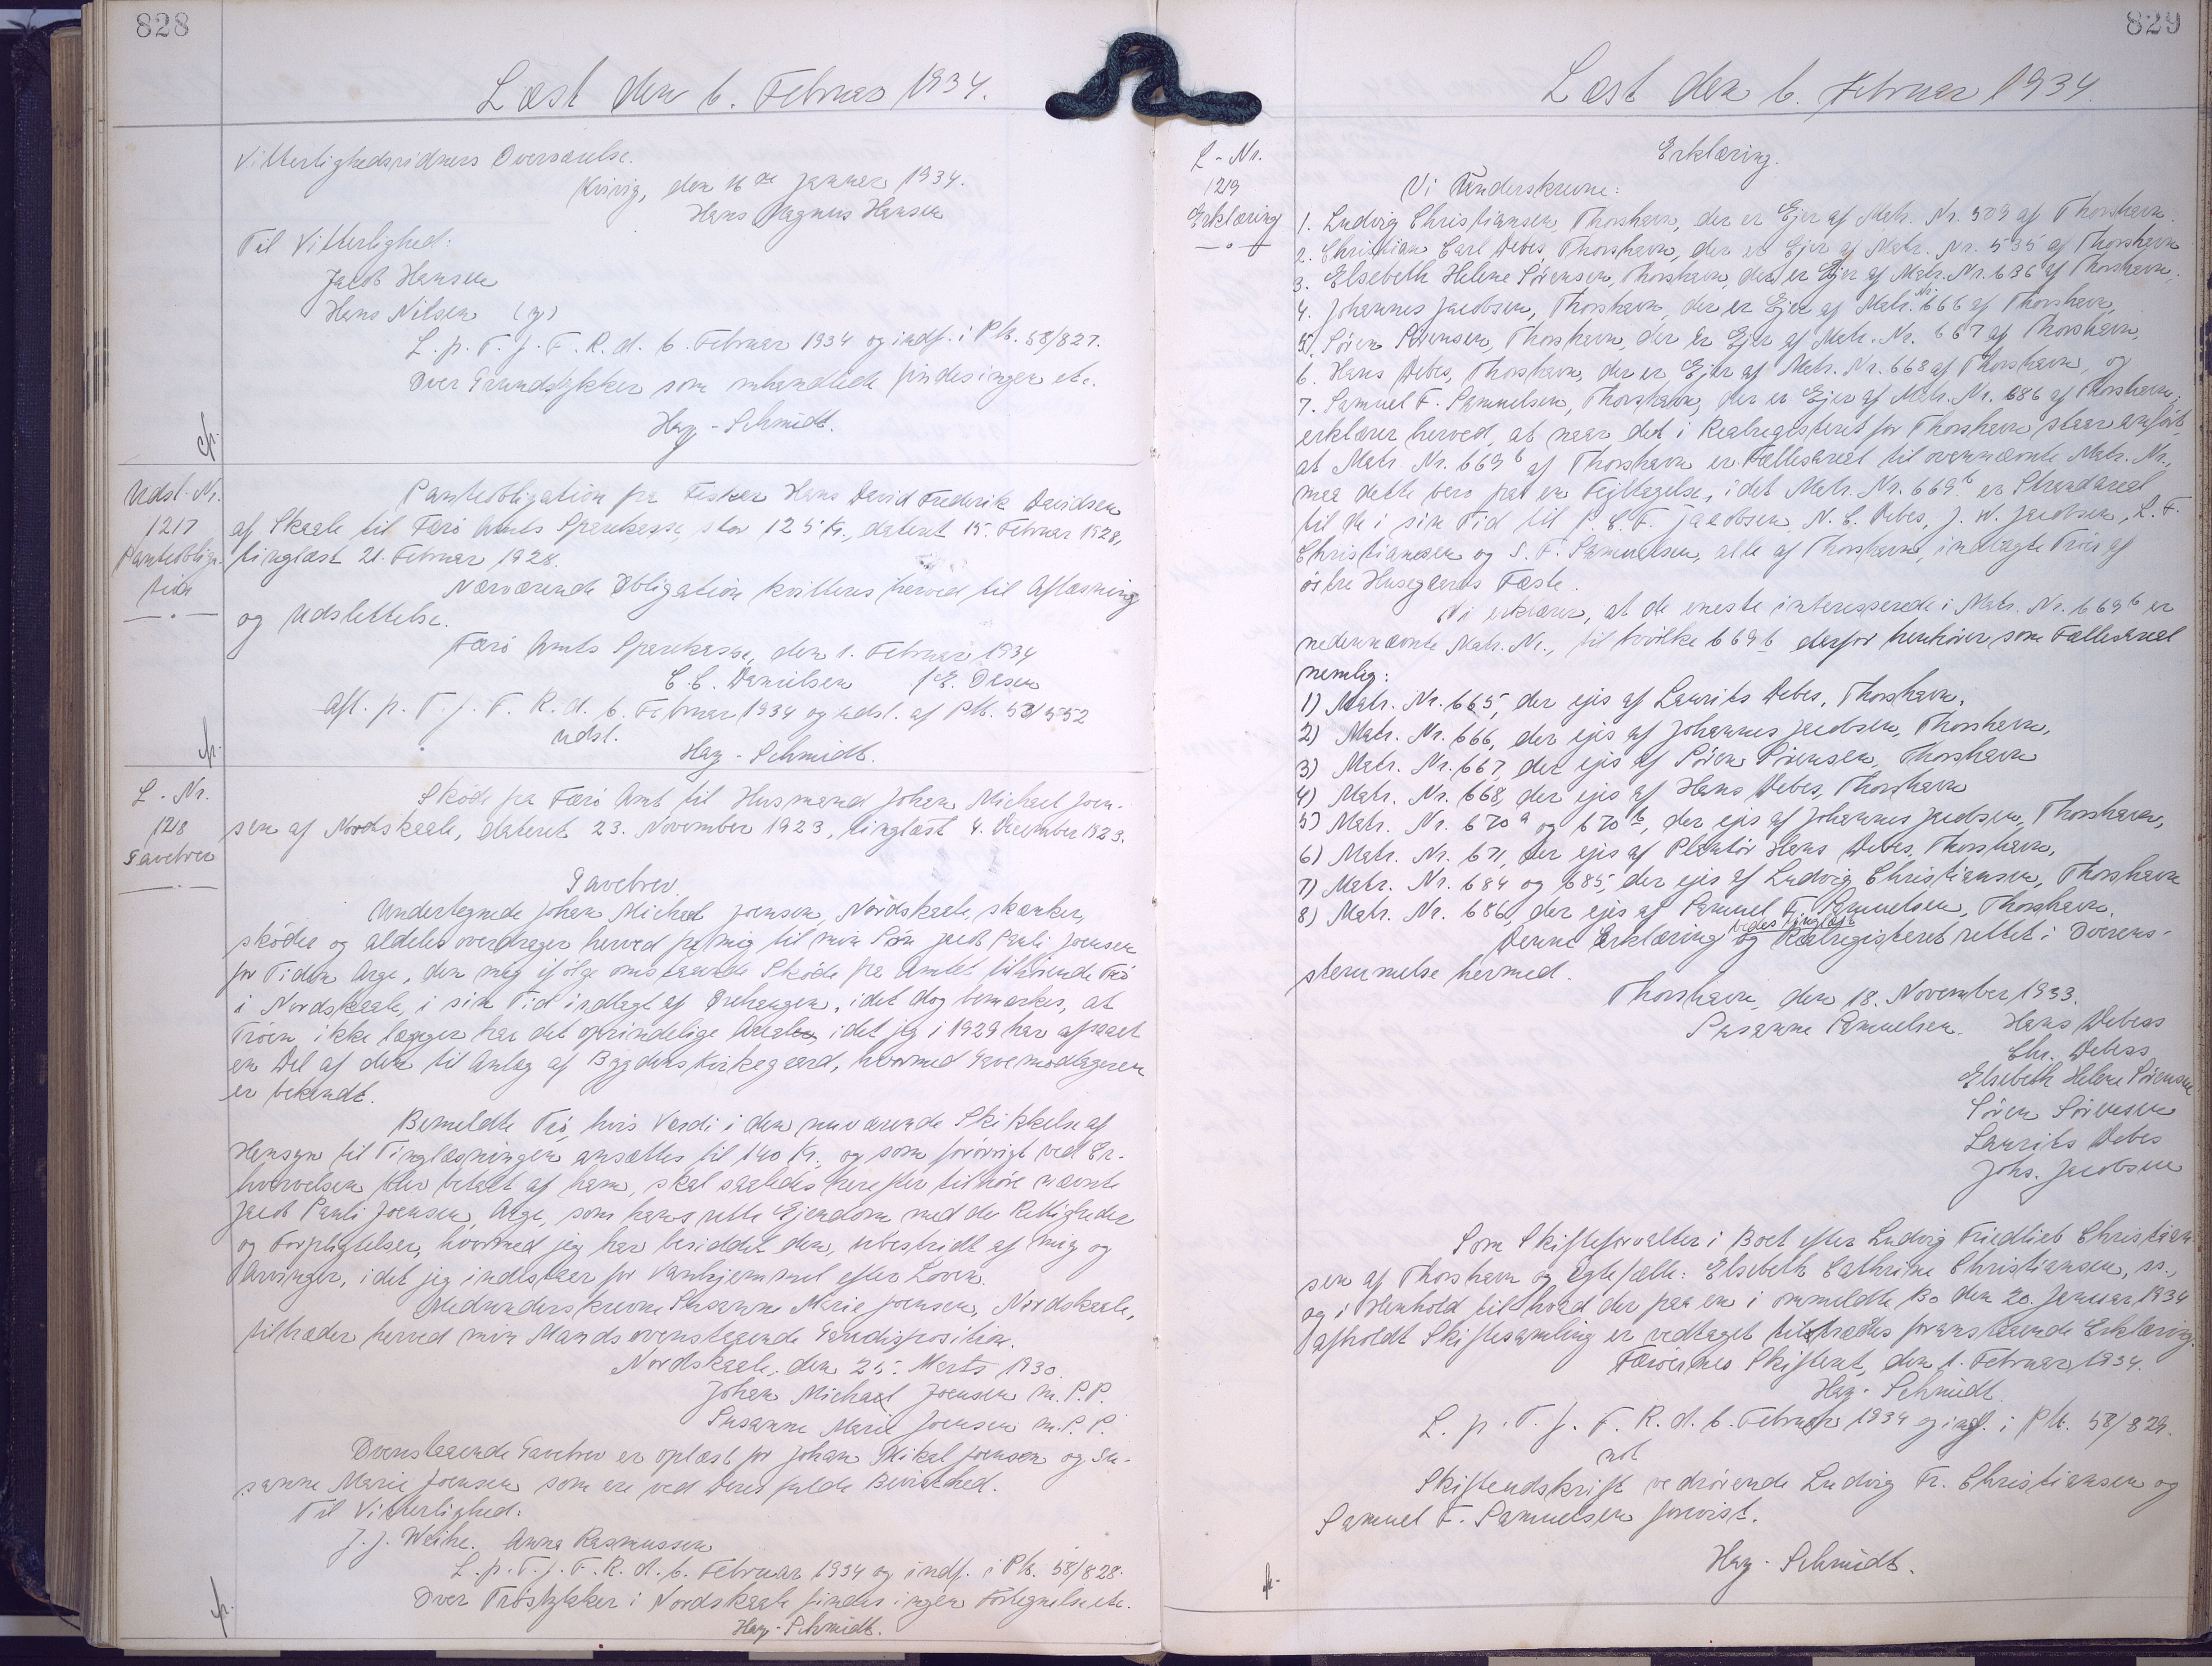 828
Læst den 6. Februar 1934.
Vitterlighedsvidners Overværelse.
Kvivig, den 16de Januar 1934.
Hans Magnus Hansen
Til Vitterlighed:
Jacob Hansen
Hans Nilsen (g)
L. p. T. f. F. R. d. 6. Februar 1934 og indf. i Pb. 58/827.
Over Grundstykker som omhandlede findes ingen etc.
Hay-Schmidt.
cfr.
Udsl. Nr.
1217
Panteobliga-
tion
Panteobligation fra Fisker Hans David Frederik Davidsen
af Skaale til Færø Amts Sparekasse, stor 125 Kr., dateret 15. Februar 1928,
tinglæst 21. Februar 1928.
Nærværende Obligation kvitteres herved til Aflæsning
og Udslettelse.
Færø Amts Sparekasse, den 1. Februar 1934
C. C. Danielsen P. E. Olsen
Afl. p. T. f. F. R. d. 6. Februar 1934 og udsl. af Pb. 53/552
udsl.
Hay-Schmidt.
cfr.
L - Nr.
1218
Gavebrev
Skøde fra Færø Amt til Husmand Johan Michael Joen-
sen af Nordskaale, dateret 23. November 1923, tinglæst 4. December 1923.
Gavebrev.
Undertegnede Johan Michael Joensen, Nordskaale, skænker,
skøder og aldeles overdrager herved fra mig til min Søn Jacob Pauli Joensen
for Tiden Arge, den mig ifølge omstaaende Skøde fra Amtet tilhørende Trø
i Nordskaale, i sin Tid indtagt af Udehaugen, idet dog bemærkes, at
Trøen ikke længer har det oprindelige Areal, idet jeg i 1929 har afstaaet
en Del af den til Anlæg af Bygdens Kirkegaard, hvormed Gavemodtageren
er bekendt.
Bemeldte Trø, hvis Værdi i den nuværende Skikkelse af
Hensyn til Tinglæsningen ansættes til 140 Kr., og som forøvrigt ved Er-
hvervelsen blev betalt af ham, skal saaledes herefter tilhøre nævnte
Jacob Pauli Joensen, Arge, som hans rette Ejendom med de Rettigheder
og Forpligtelser, hvormed jeg har besiddet den, ubestridt af mig og
Arvinger, idet jeg indestaaer for Vanhjemmel efter Loven.
Medunderskrevne Susanne Marie Joensen, Nordskaale,
tiltræder herved min Mands ovenstaaende Gavedisposition.
Nordskaale, den 25. Marts 1930.
Johan Michael Joensen m. P. P.
Susanne Marie Joensen m. P. P.
Ovenstaaende Gavebrev er oplæst for Johan Mikal Joensen og Su-
sanne Marie Joensen som ere ved Deres fulde Bevisthed.
Til Vitterlighed:
J. J. Weihe. Anna Rasmussen
L. p. T. f. F. R. d. 6. Februar 1934 og indf. i Pb. 58/828.
Over Trøstykker i Nordskaale findes ingen Fortegnelse etc.
Hay-Schmidt.
cfr.
829
Læst den 6. Februar 1934.
L - Nr.
1219
Erklæring
Erklæring.
Vi Underskrevne:
1. Ludvig Christiansen, Thorshavn, der er Ejer af Matr. Nr. 509 af Thorshavn.
2. Christian Carl Debes, Thorshavn, der er Ejer af Matr. Nr. 535 af Thorshavn
3. Elsebeth Helene Sørensen, Thorshavn, der er Ejer af Matr. Nr. 636 af Thorshavn,
4. Johannes Jacobsen, Thorshavn, der er Ejer af Matr. Nr. 666 af Thorshavn,
5. Søren Sørensen, Thorshavn, der er Ejer af Matr. Nr. 667 af Thorshavn,
6. Hans Debes, Thorshavn, der er Ejer af Matr. Nr. 668 af Thorshavn, og
7. Samuel F. Samuelsen, Thorshavn, der er Ejer af Matr. Nr. 686 af Thorshavn,
erklærer herved, at naar det i Realregisteret for Thorshavn staar anført,
at Matr. Nr. 669b af Thorshavn er Fællesareal til ovennævnte Matr. Nr.,
maa dette bero paa en Fejltagelse, idet Matr. Nr. 669b er Strandareal
til de i sin Tid til P. C. F. Jacobsen, N. C. Debes, J. W. Jacobsen, L. F.
Christiansen og S. F. Samuelsen, alle af Thorshavn, indtagte Trøer af
østre Husegaards Fæste.
Vi erklærer, at de eneste interesserede i Matr. Nr. 669b er
nedennævnte Matr. Nr., til hvilke 669b derfor henhører som Fællesareal
nemlig:
1) Matr. Nr. 665, der ejes af Laurits Debes, Thorshavn,
2) Matr. Nr. 666, der ejes af Johannes Jacobsen, Thorshavn,
3) Matr. Nr. 667, der ejes af Søren Sørensen, Thorshavn
4) Matr. Nr. 668, der ejes af Hans Debes, Thorshavn
5) Matr. Nr. 670a og 670b, der ejes af Johannes Jacobsen, Thorshavn,
6) Matr. Nr. 671, der ejes af Plantør Hans Debes, Thorshavn,
7) Matr. Nr. 684 og 685, der ejes af Ludvig Christiansen, Thorshavn
8) Matr. Nr. 686, der ejes af Samuel F. Samuelsen, Thorshavn.
Denne Erklæring bedes tinglæst og Realregisteret rettet i Overens-
stemmelse hermed.
Thorshavn, den 18. November 1933.
Susanne Samuelsen. Hans Debess
Chr. Debess
Elsebeth Helene Sørensen
Søren Sørensen
Laurits Debes
Johs. Jacobsen
Som Skifteforvalter i Boet efter Ludvig Friedlieb Christian-
sen af Thorshavn og Ægtefælle: Elsebeth Cathrine Christiansen, ss.,
og i Henhold til hvad der paa en i ommeldte Bo den 20. Januar 1934
afholdt Skiftesamling er vedtaget tiltrædes foranstaaende Erklæring.
Færøernes Skifteret, den 1. Februar 1934.
Hay-Schmidt.
L. p. T. f. F. R. d. 6. Februar 1934 og indf. i Pb. 58/829.
not
Skifteudskrift vedrørende Ludvig Fr. Christiansen og
Samuel F. Samuelsen forevist.
Hay-Schmidt.
cfr.